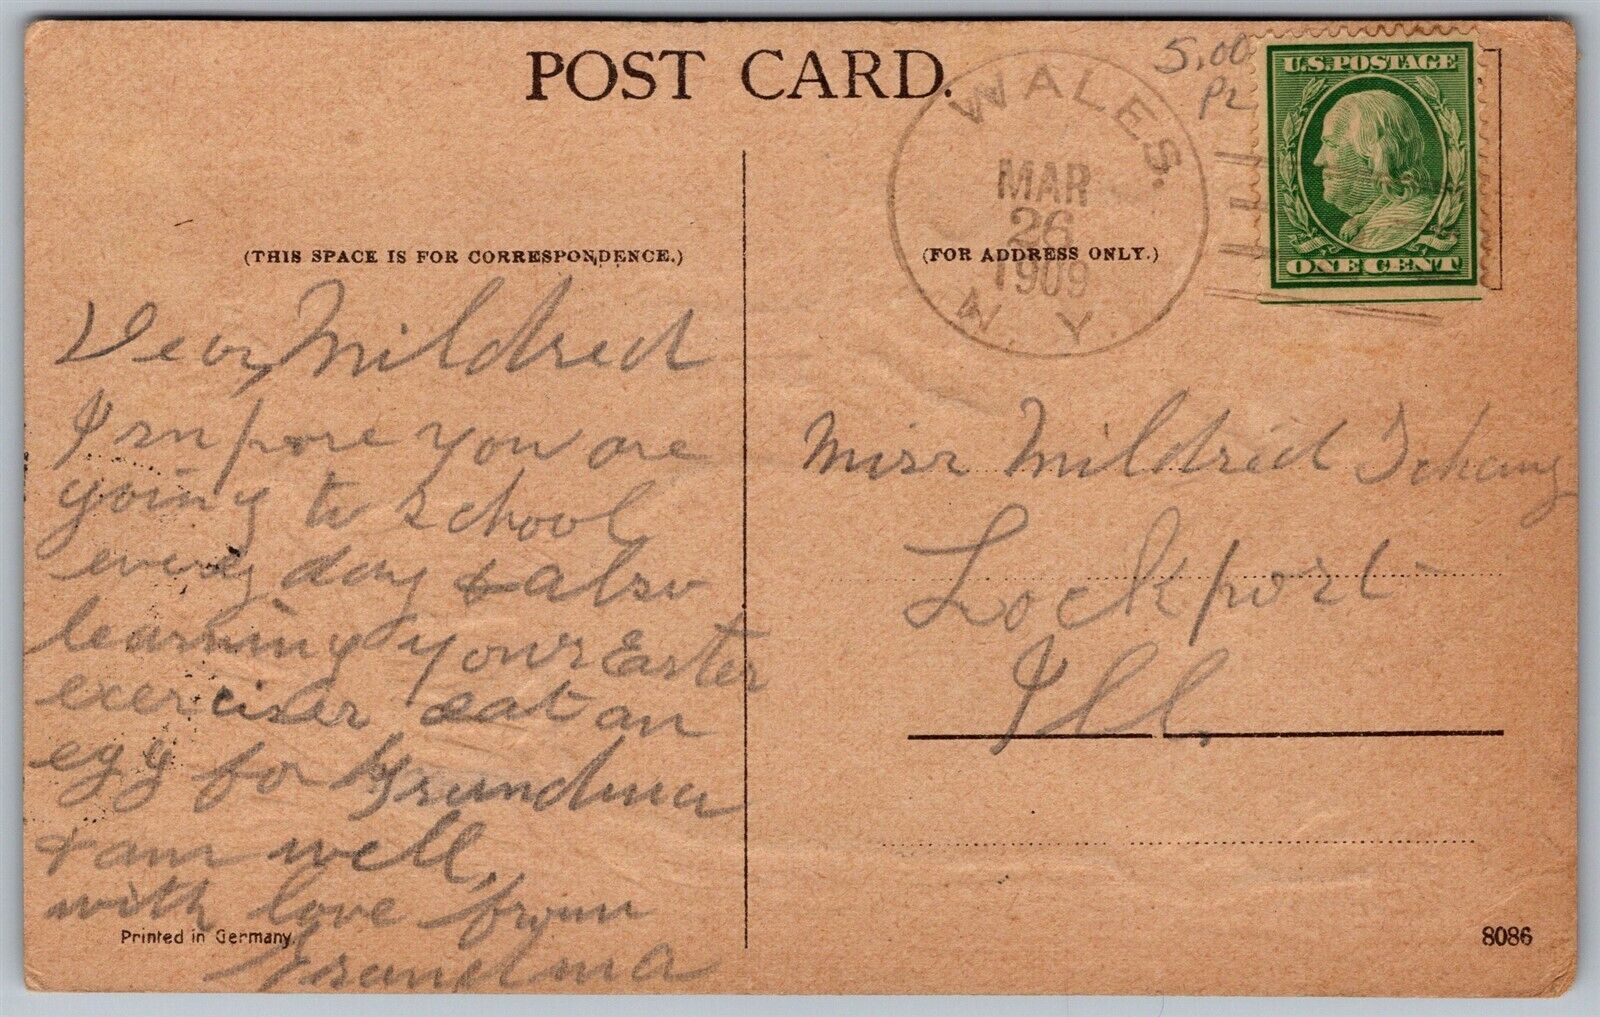 POST CARD.
5.00
Pz
U.S. POSTAGE
ONE CENT
WALES.
MAR
26
1909
N. Y.
(THIS SPACE IS FOR CORRESPONDENCE.)
(FOR ADDRESS ONLY.)
Dear Mildred
I supose you are
going to school
every day & also
learning your Easter
exercises eat an
egg for Grandma
I am well,
with love from
Grandma
Miss Mildred
Lockport
Ill.
Printed in Germany.
8086